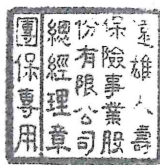 遠雄人壽
保險事業股
份有限公司
總經理章
團保專用